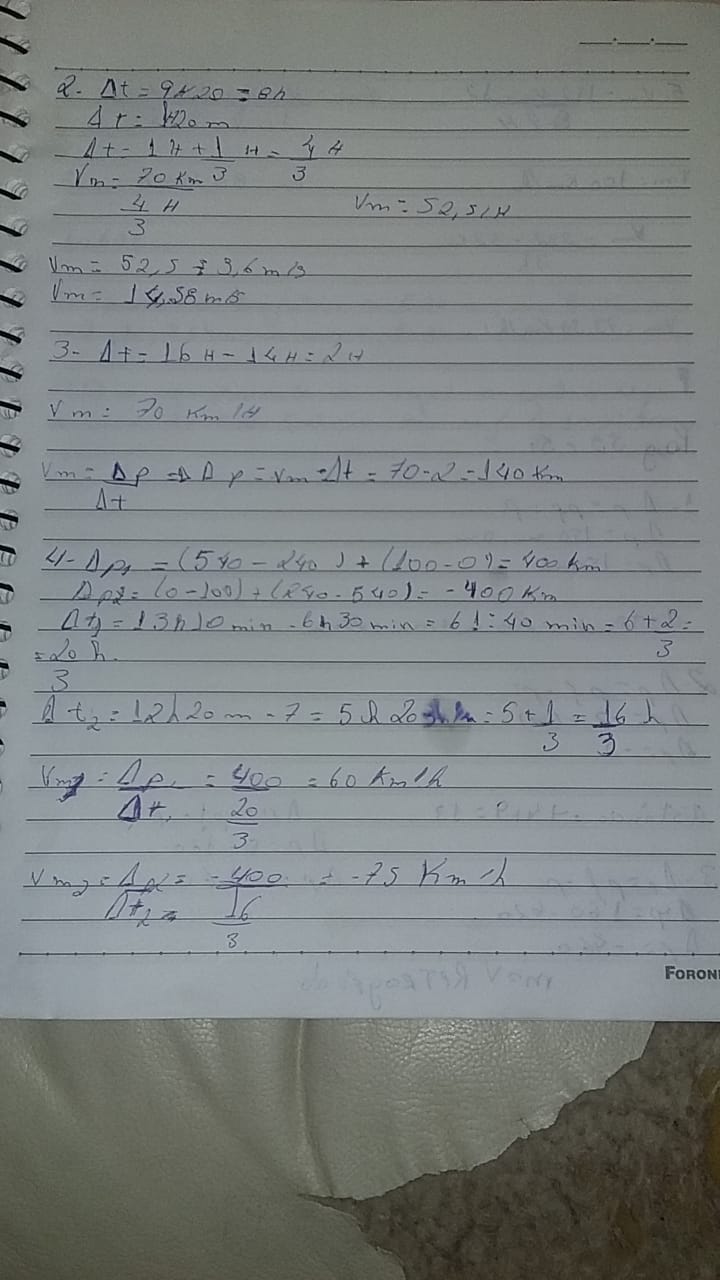 2- Δt = 9h20 = 8h
Δt = 1h20m
Δt = 1H + 1/3 H = 4/3 H
Vm = 70 Km / 4/3 H Vm = 52,5/H
Vm = 52,5 ÷ 3,6 m/s
Vm = 14,58 m/s
3- Δt = 16H - 14H = 2H
Vm = 70 Km/H
Vm = Δp/Δt => Δp = Vm·Δt = 70·2 = 140 Km
4- Δp1 = (540 - 240) + (100 - 0) = 400 km
Δp2 = (0-100) + (240-540) = -400 Km
Δt1 = 13h10min - 6h30min = 61:40 min = 6+2/3 =
= 20/3 h.
Δt2 = 12h20m - 7 = 5h20 = 5+1/3 = 16/3 h
Vm = Δp1/Δt1 = 400 / 20/3 = 60 Km/h
Vm2 = Δp2/Δt2 = -400 / 16/3 = -75 Km/h
FORONI